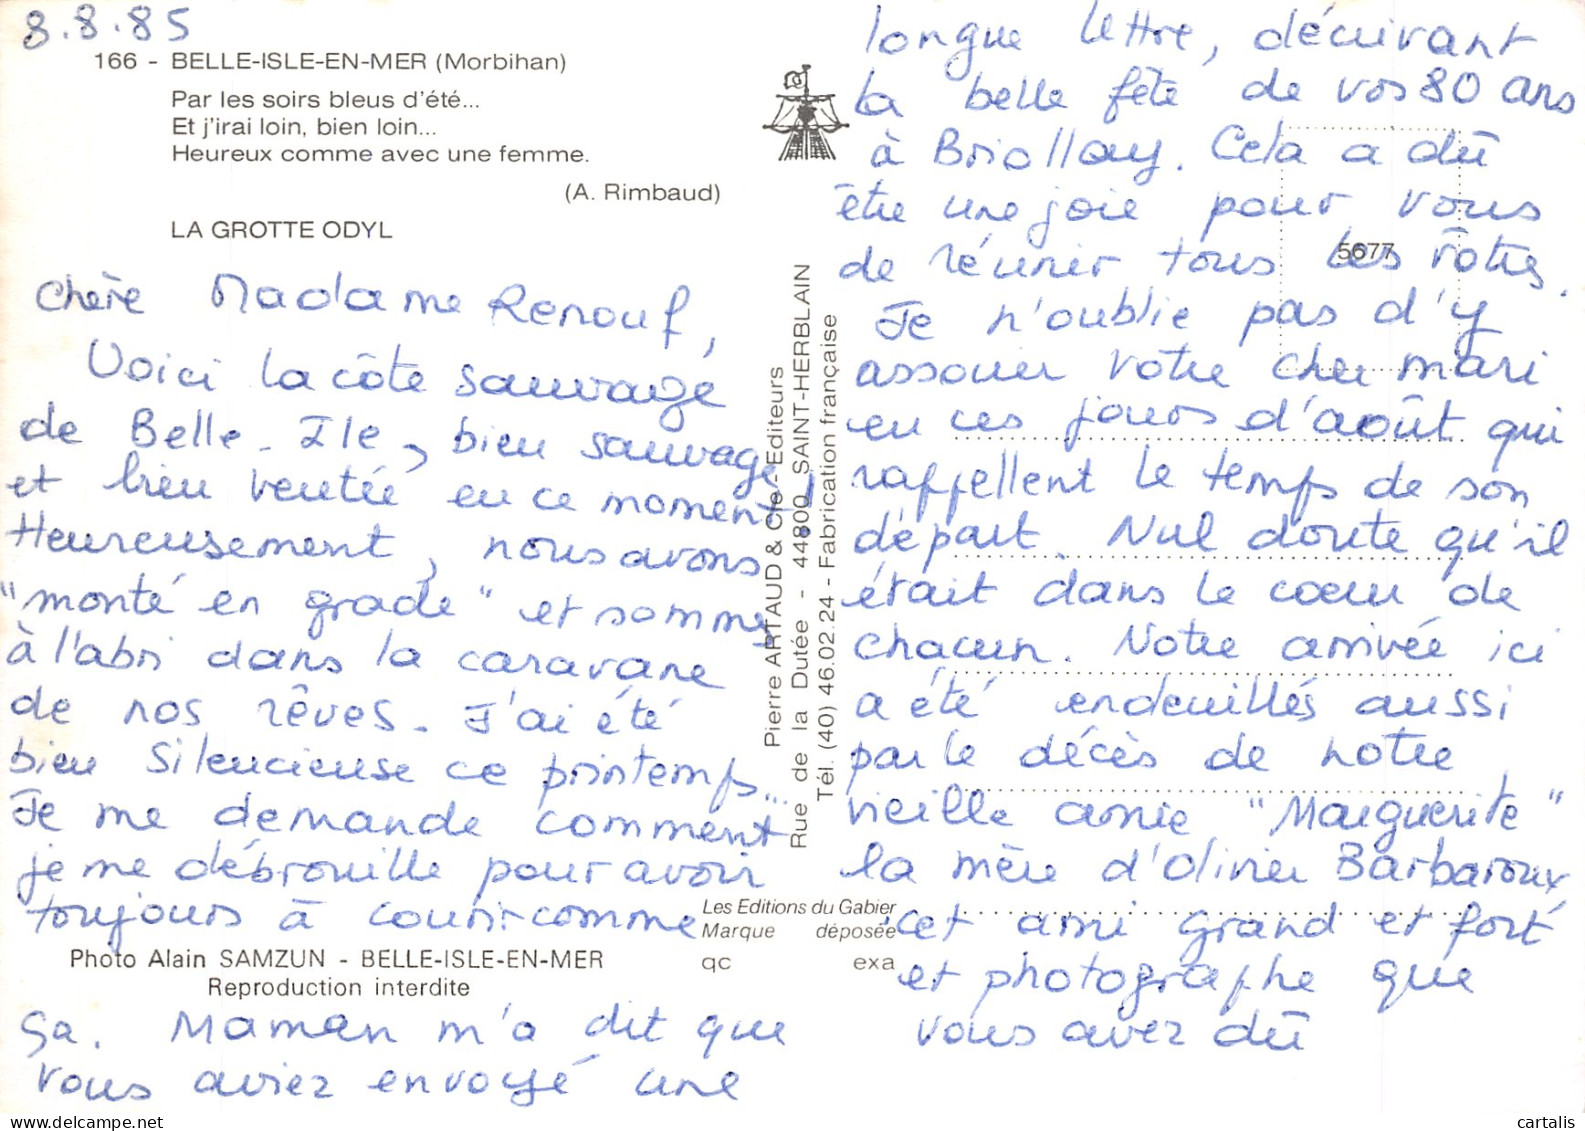 8.8.85
166 - BELLE-ISLE-EN-MER (Morbihan)
Par les soirs bleus d'été...
Et j'irai loin, bien loin...
Heureux comme avec une femme.
(A. Rimbaud)
LA GROTTE ODYL
Chère Madame Renouf,
Voici la côte sauvage
de Belle-Ile, bien sauvage
et bien ventée en ce moment,
Heureusement, nous avons
"monté en grade" et sommes
à l'abri dans la caravane
de nos rêves. J'ai été
bien silencieuse ce printemps...
Je me demande comment
je me débrouille pour avoir
toujours à courir comme
Photo Alain SAMZUN - BELLE-ISLE-EN-MER
Reproduction interdite
ça. Maman m'a dit que
vous aviez envoyé une
Pierre ARTAUD & Cie - Editeurs
Rue de la Dutée - 44800 SAINT-HERBLAIN
Tél. (40) 46.02.24 - Fabrication française
Les Editions du Gabier
Marque déposée
qc exa
5677
longue lettre, décrivant
la belle fête de vos 80 ans
à Briollay. Cela a dû
être une joie pour vous
de réunir tous les vôtres.
Je n'oublie pas d'y
associer votre cher mari
en ces jours d'août qui
rappellent le temps de son
départ. Nul doute qu'il
était dans le coeur de
chacun. Notre arrivée ici
a été endeuillés aussi
par le décès de notre
vieille amie "Marguerite"
la mère d'Olivier Barbaroux
cet ami grand et fort
et photographe que
vous avez dû
cartalis